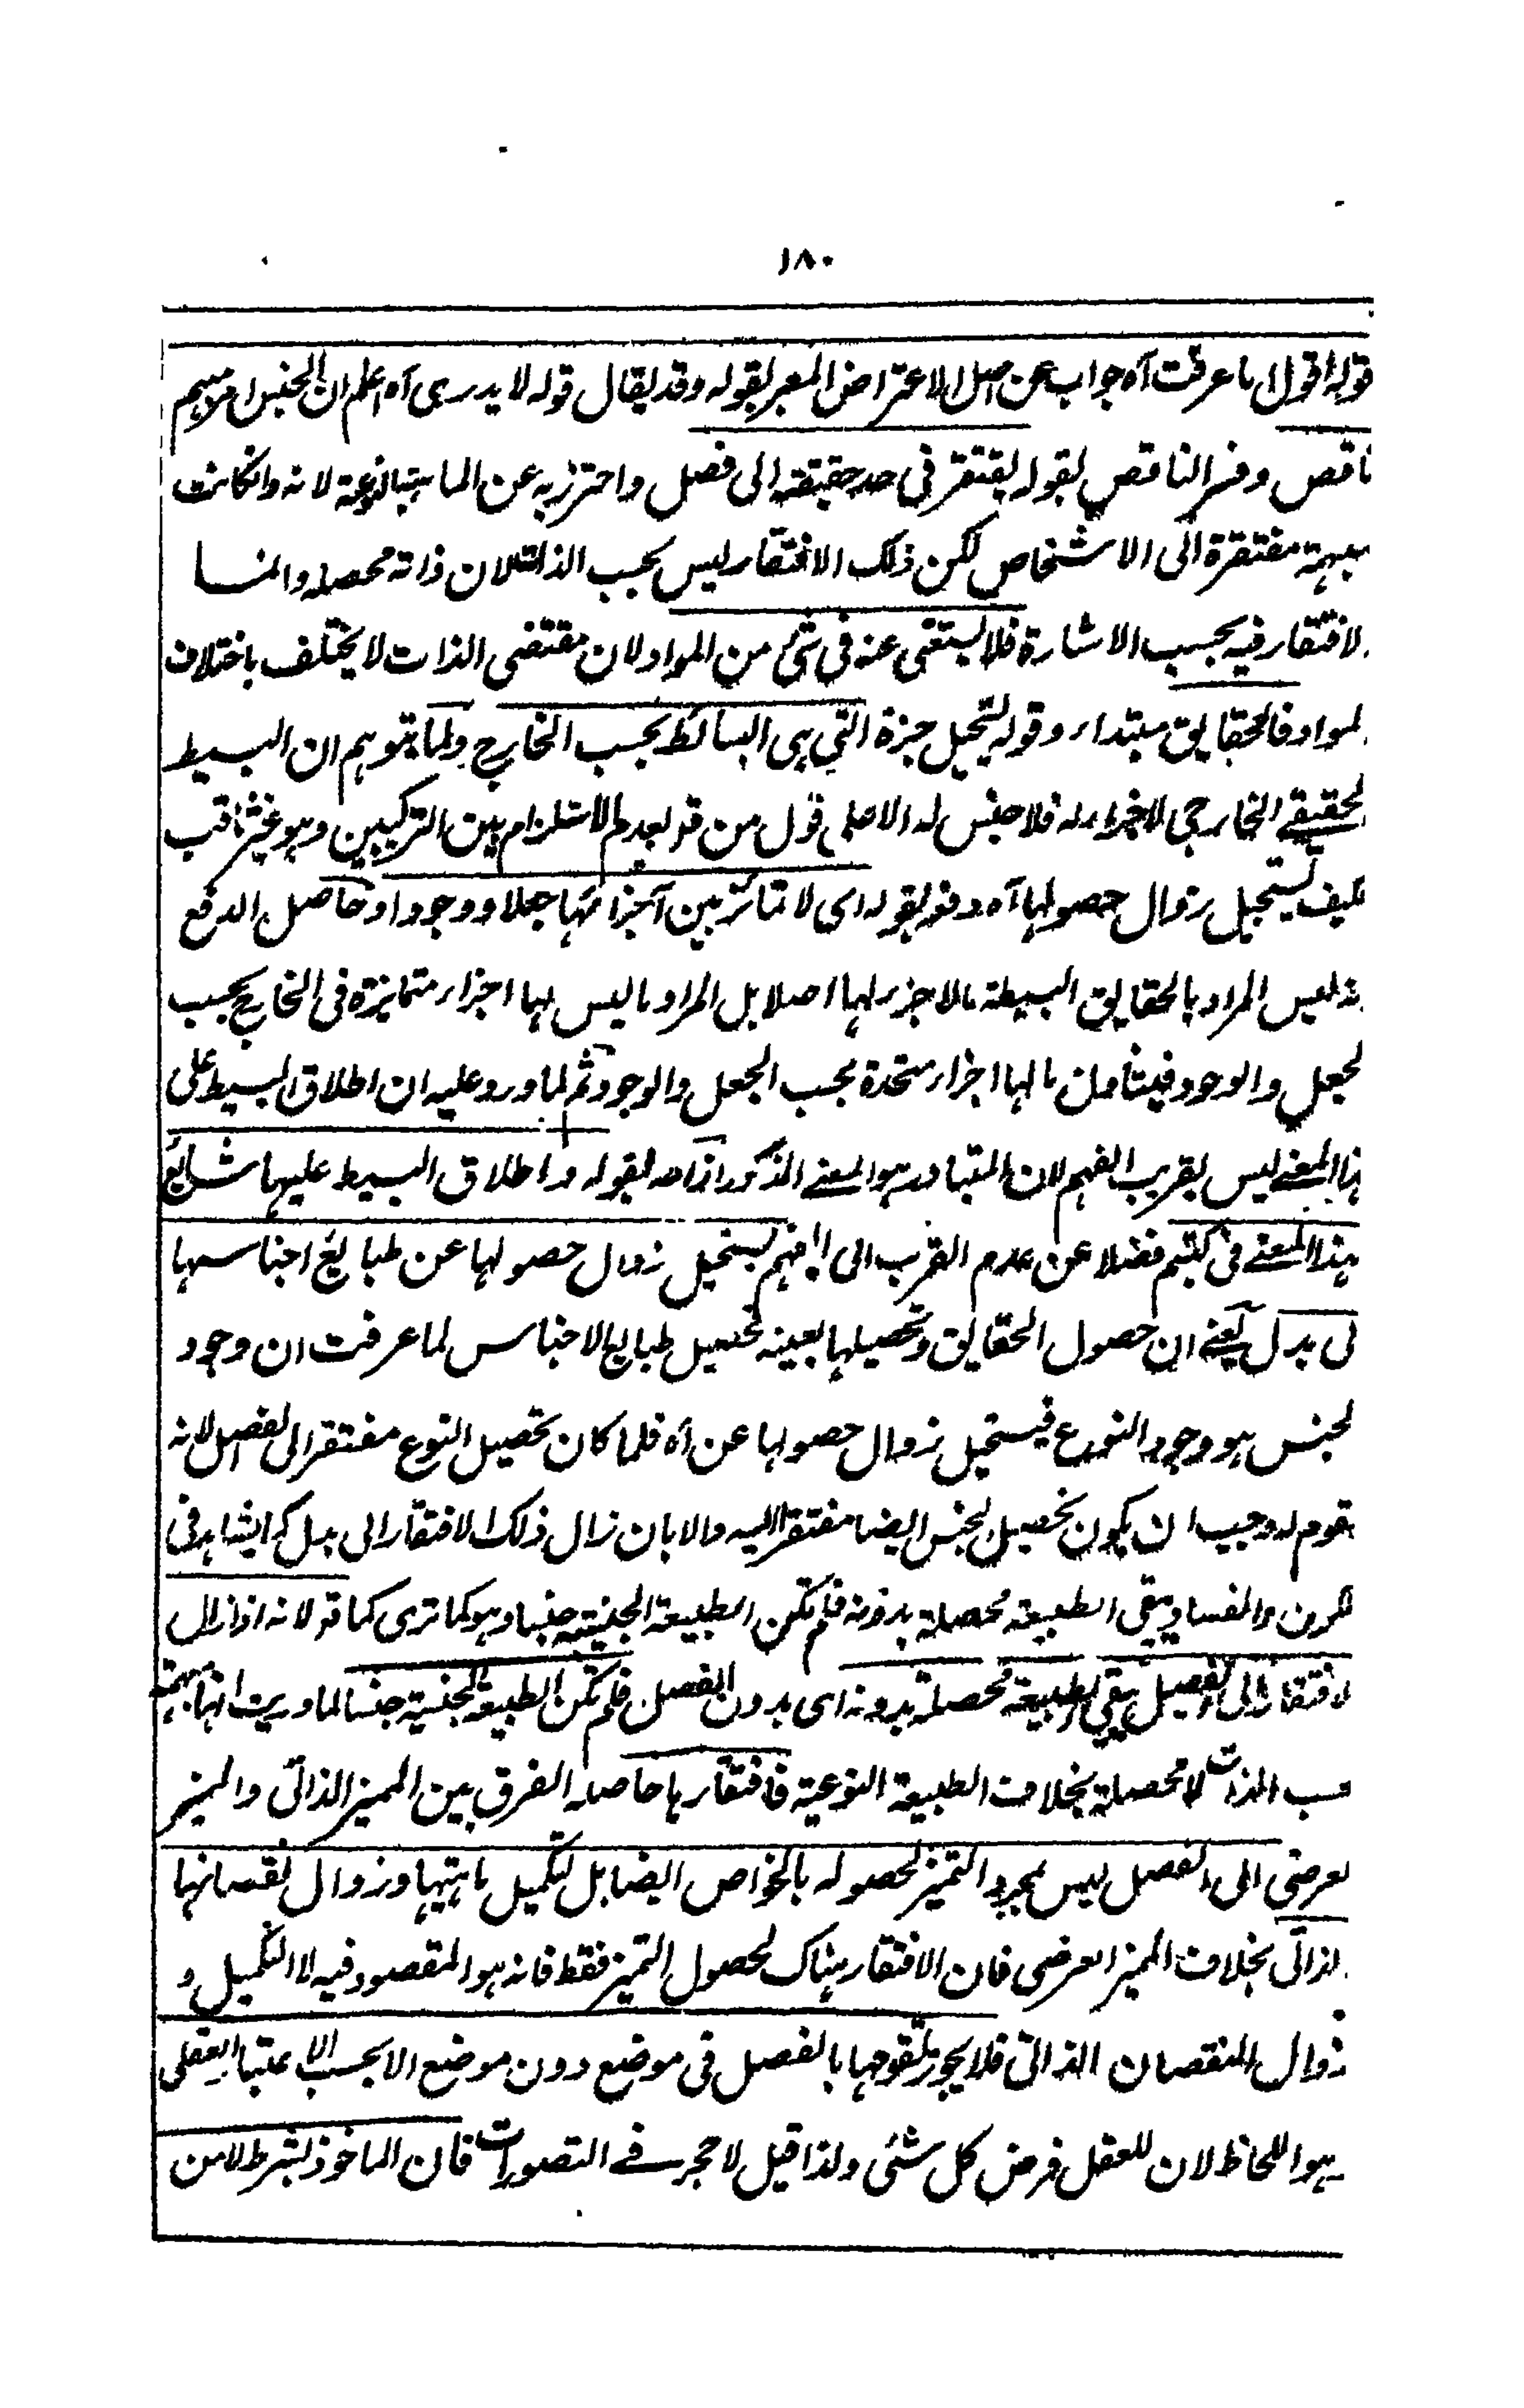 ١٨٠
قوله اقول ما عرفت آه جواب عن اصل الاعتراض المعبر بقوله وقد يقال قوله لا يدرى آه اعلم ان الجنس امر مبهم
ناقص وفسر الناقص بقوله يفتقر فى حد حقيقته الى فصل واحترز به عن الماهية النوعية لانه وانكانت
مبهمة مفتقرة الى الاشخاص لكن ذلك الافتقار ليس بحسب الذات لان ذاته محصلة وانما
لافتقار فيه بحسب الاشارة فلا يستغنى عنه فى شئ من المواد لان مقتضى الذات لا يختلف باختلاف
لمواد فالحقايق مبتداء وقوله يستحيل خبره التى هى البسائط بحسب الخارج ولما يتوهم ان البسيط
لحقيقے الخارجى لا اجزاء له فلا جنس له الا على قول من قو بعدم الاستلزام بين التركيبين وهو غير ثاقب
كيف يستحيل زوال حصولها آه دفعه بقوله اى لا تمائز بين اجزائها جعلا ووجودا وحاصل الدفع
نه ليس المراد بالحقايق البسيطة ما لا جزء لها اصلا بل المراد ما ليس لها اجزاء متمايزة فى الخارج بحسب
لجعل والوجود فيتأمل ما لها اجزاء متحدة بحسب الجعل والوجود ثم لما ورد عليه ان اطلاق البسيط على
هذا المعنے ليس بقريب الفهم لان المتبادر هو المعنے المذكور ازاحه بقوله واطلاق البسيط عليها شائع
بهذا المعنے فى كتبهم فضلا عن عدم القرب الى الفهم يستحيل زوال حصولها عن طبائع اجناسها
لى بدل يعنے ان حصول الحقايق وتحصيلها بعينه تحصيل طبايع الاجناس لما عرفت ان وجود
لجنس هو وجود النوع فيستحيل زوال حصولها عن آه فلما كان تحصيل النوع مفتقر الى الفصل لانه
مقوم له وجب ان يكون تحصيل الجنس ايضا مفتقرا اليه والا بان زال ذلك الافتقار الى بدل كما يشاهد فى
لكون والفساد يبقى الطبيعة محصلة بدونه فلم تكن الطبيعة الجنسية جنسا وهو كما ترى كما قو لانه اذا زال
لافتقار الى الفصل يبقى الطبيعة محصلة بدونه اى بدون الفصل فلم تكن الطبيعة الجنسية جنسا لما دريت انها مبهمة
حسب الذات لا محصلة بخلاف الطبيعة النوعية فافتقارها حاصله الفرق بين المميز الذاتى والمميز
لعرضى الى الفصل ليس لمجرد التميز لحصوله بالخواص ايضا بل لتكميل ماهيتها وزوال نقصانها
لذاتى بخلاف المميز العرضى فان الافتقار هناك لحصول التميز فقط فانه هو المقصود فيه لا التكميل و
زوال النقصان الذاتى فلا يجوز تقومها بالفصل فى موضع دون موضع الا بحسب الاعتبار العقلى
هو اللحاظ لان للعقل فرض كل شئى ولذا قيل لا حجر فے التصورات فان الماخوذ بشرط لا من